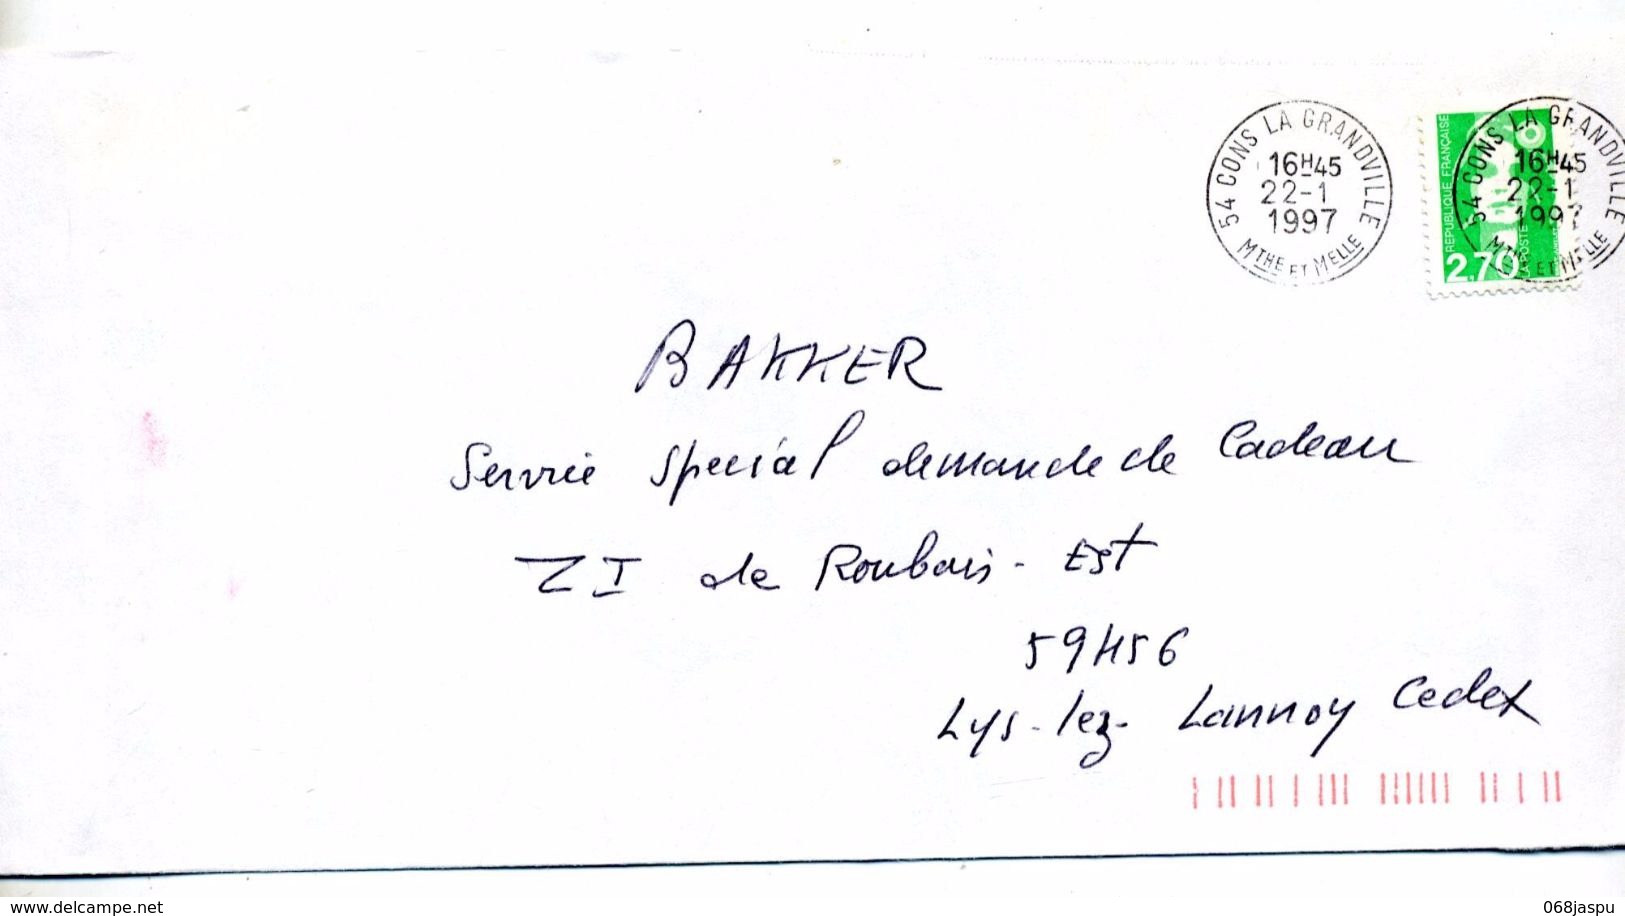 54 CONS LA GRANDVILLE
16H45
22-1
1997
MTHE ET MELLE
REPUBLIQUE FRANÇAISE
2,70
LA POSTE
54 CONS LA GRANDVILLE
16H45
22-1
1997
MTHE ET MELLE
BAKKER
Service spécial demande de Cadeau
ZI de Roubais - EST
59456
Lys-lez- Lannoy Cedex
www.delcampe.net
068jaspu